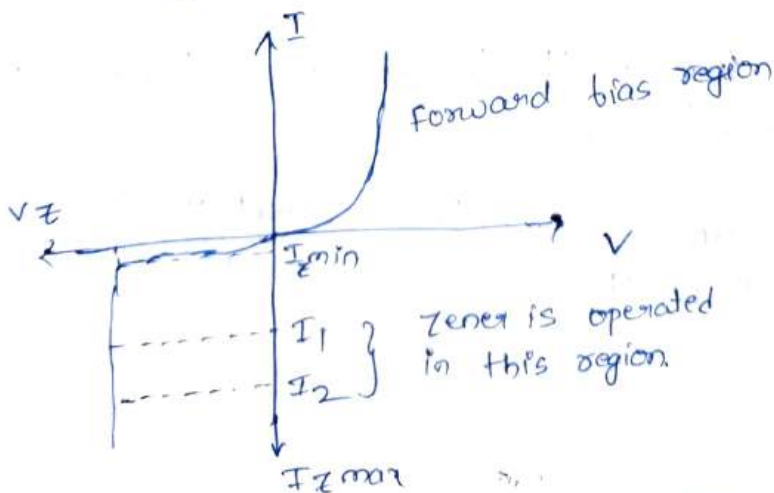 I
Forward bias region
VZ
V
Izmin
I1
zener is operated
I2
in this region.
IZ max